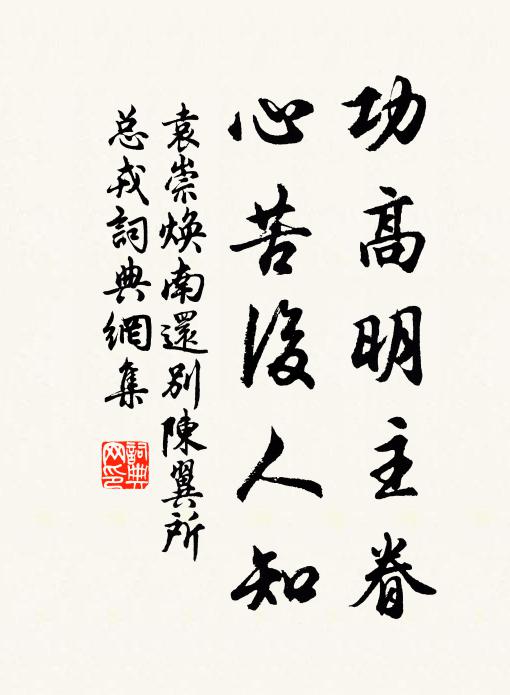 功高明主眷
心苦後人知
袁崇焕南還别陳翼所
总戎詞典網集
詞典
网印